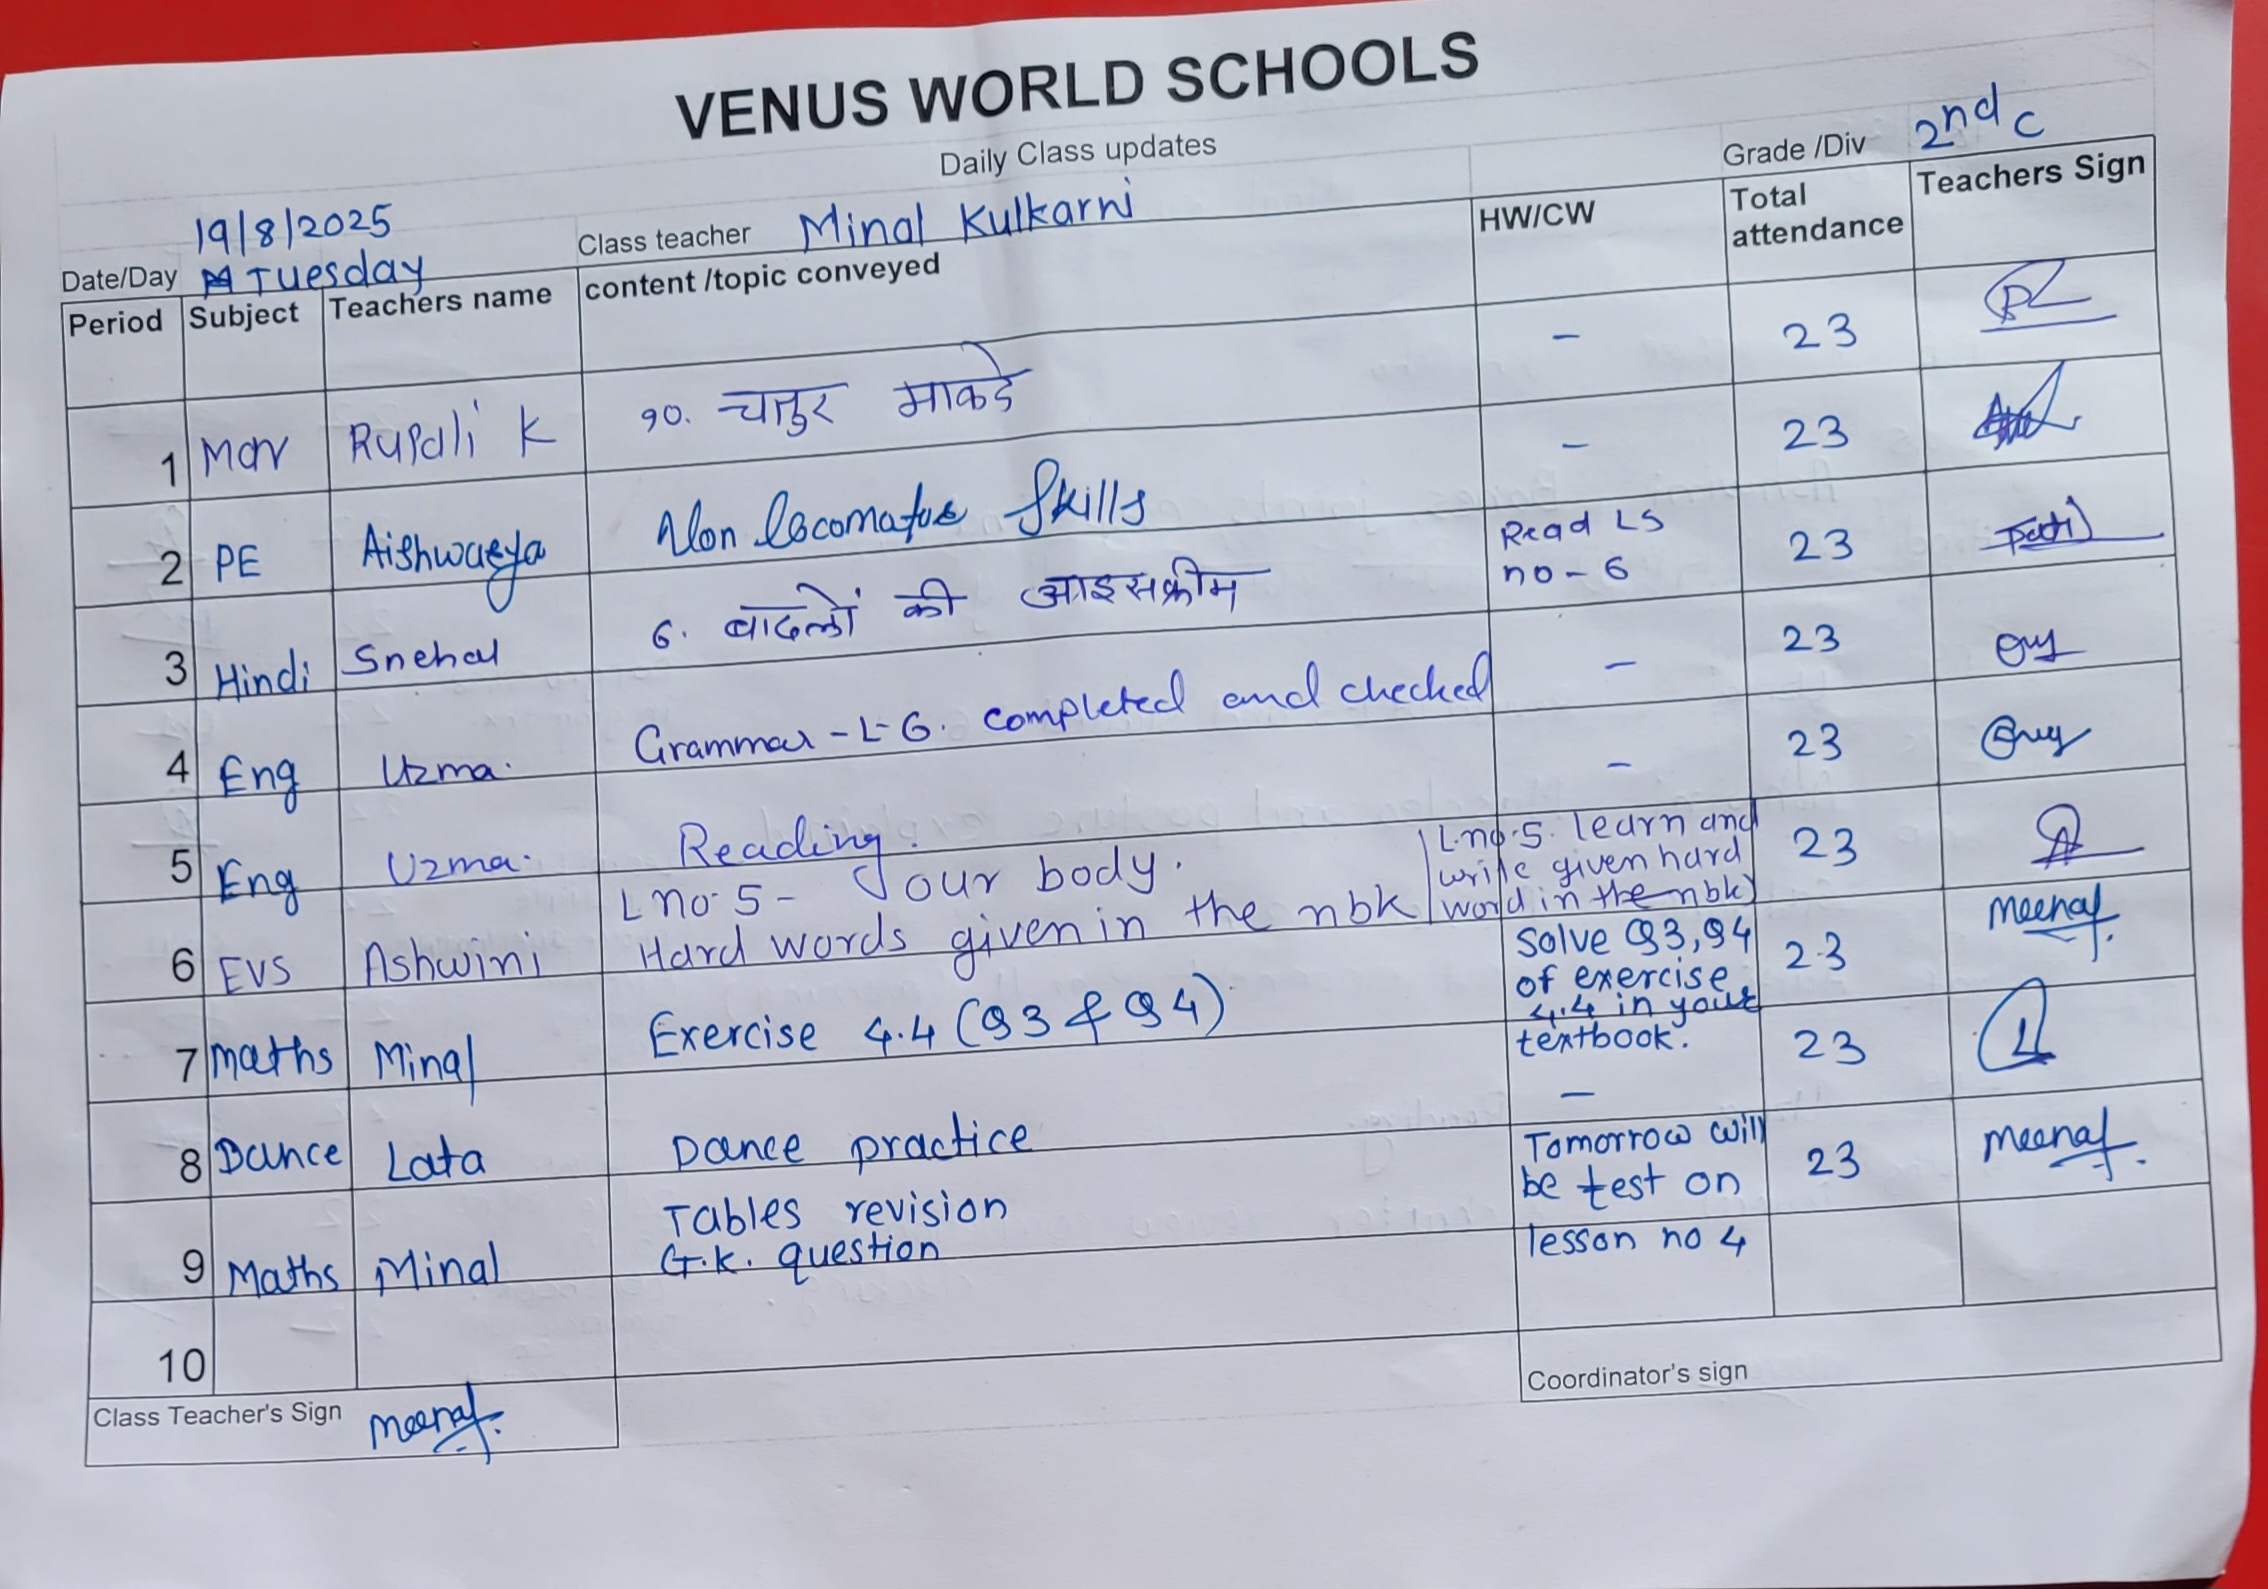 VENUS WORLD SCHOOLS
Daily Class updates
Grade /Div 2nd C
19/8/2025
Date/Day Tuesday Class teacher Minal Kulkarni
Period Subject Teachers name content /topic conveyed HW/CW Total attendance Teachers Sign
1 Mar Rupali K १०. चतुर माकडे - 23
2 PE Aishwarya Non locomotor Skills - 23
3 Hindi Snehal 6. बादलों की आइसक्रीम Read LS no - 6 23
4 Eng Uzma. Grammar - L-6. completed and checked - 23
5 Eng Uzma. Reading. - 23
6 EVS Ashwini L no. 5 - our body.
Hard words given in the nbk
L.no.5. learn and
write given hard
word in the nbk 23
7 Maths Minal Exercise 4.4 (Q3 & Q4)
Solve Q3, Q4
of exercise
4.4 in your
textbook. 23 meenal
8 Dance Lata Dance practice - 23
9 Maths Minal Tables revision
G.K. question
Tomorrow will
be test on
lesson no 4 23 meenal
10
Class Teacher's Sign meenal
Coordinator's sign